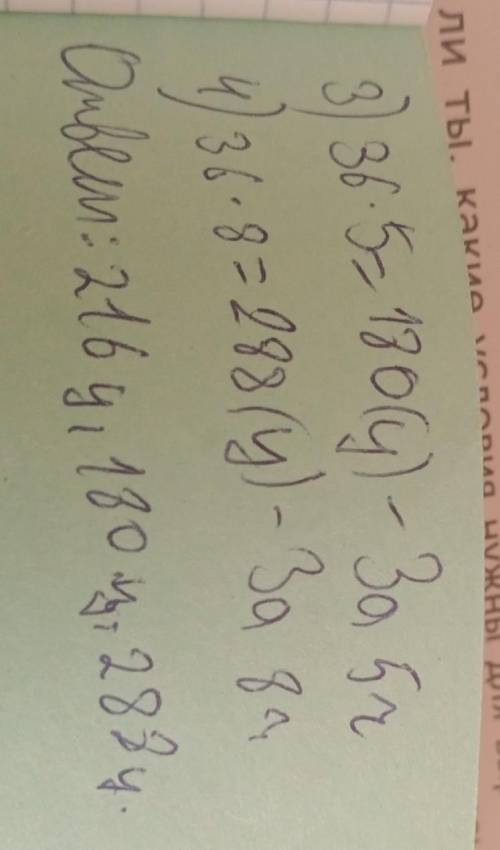 ли ты, какие условия нужны для
3) 36·5=180(ц) - За 5ч
4) 36·8=288(ц) - За 8ч
Ответ: 216 ц, 180 ц, 288ц.